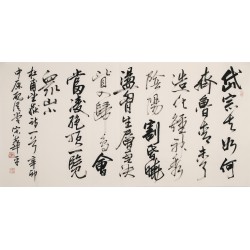 岱宗夫如何
齊魯青未了
造化鍾神秀
陰陽割昏曉
盪胸生層雲決
眥入歸鳥會
當凌絕頂一覽
眾山小
杜甫望嶽詩一首辛卯
中原